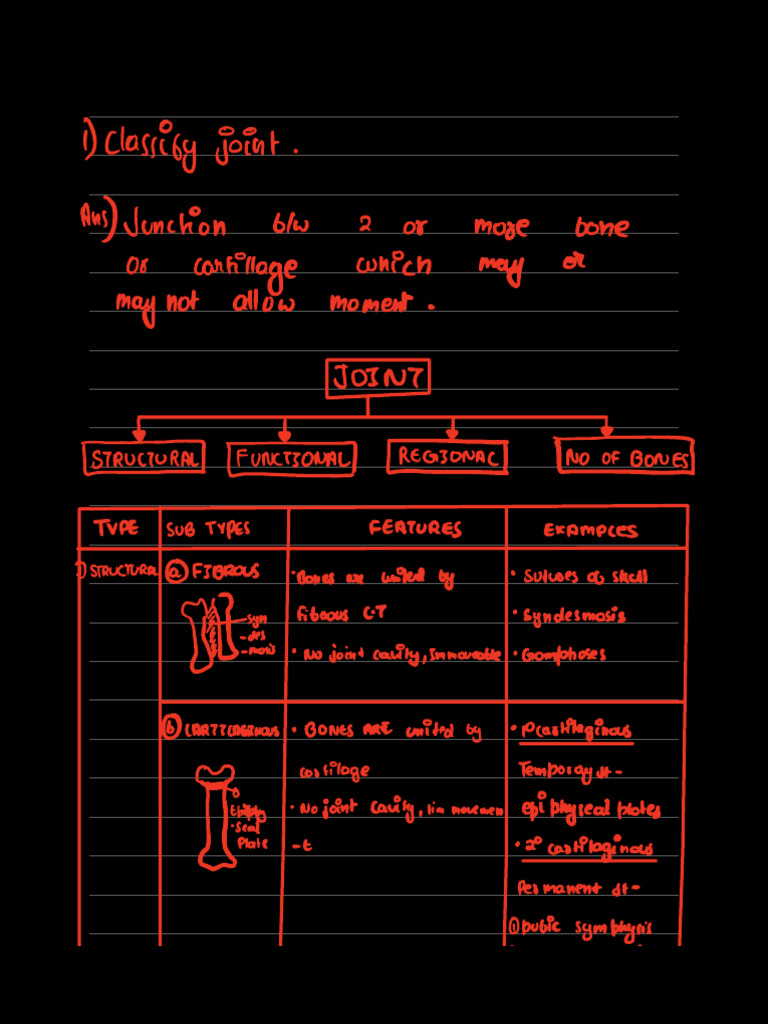 1) Classify joint.
Ans) Junction b/w 2 or more bone
or cartillage which may or
may not allow moment.
JOINT
STRUCTURAL FUNCTIONAL REGIONAL NO OF BONES
TYPE SUB TYPES FEATURES EXAMPLES
1) STRUCTURAL ⓐ FIBROUS
syn
-des
-mosis
• Bones are united by
fibrous C.T
• No joint cavity, Immoveable
• Sutures of skull
• Syndesmosis
• Gomphoses
ⓑ CARTILAGINOUS
Epiphy
• seal
Plate
• BONES ARE united by
cartilage
• No joint cavity, lim movemen
-t
• 1° cartilaginous
Temporary jt-
epiphyseal plates
• 2° cartilaginous
Permanent jt-
① pubic symphysis